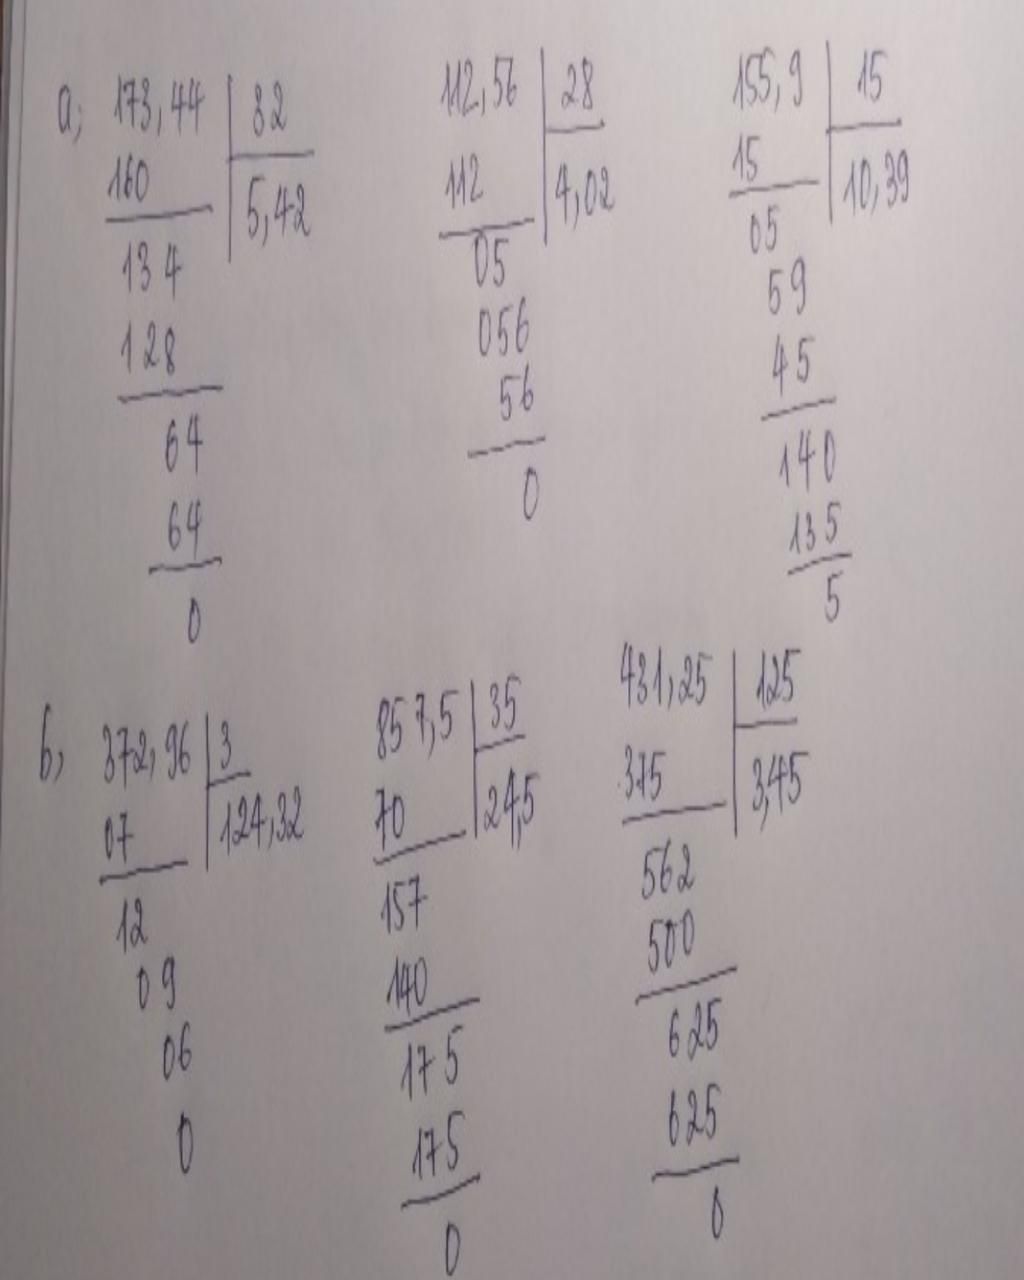 a, 173,44 32 112,56 28 155,9 15
160 5,42 112 4,02 15 10,39
134 05 05
128 056 59
64 56 45
64 0 140
0 135
5
b, 372,96 3 857,5 35 431,25 125
07 124,32 70 24,5 375 3,45
12 157 562
09 140 500
06 175 625
0 175 625
0 0